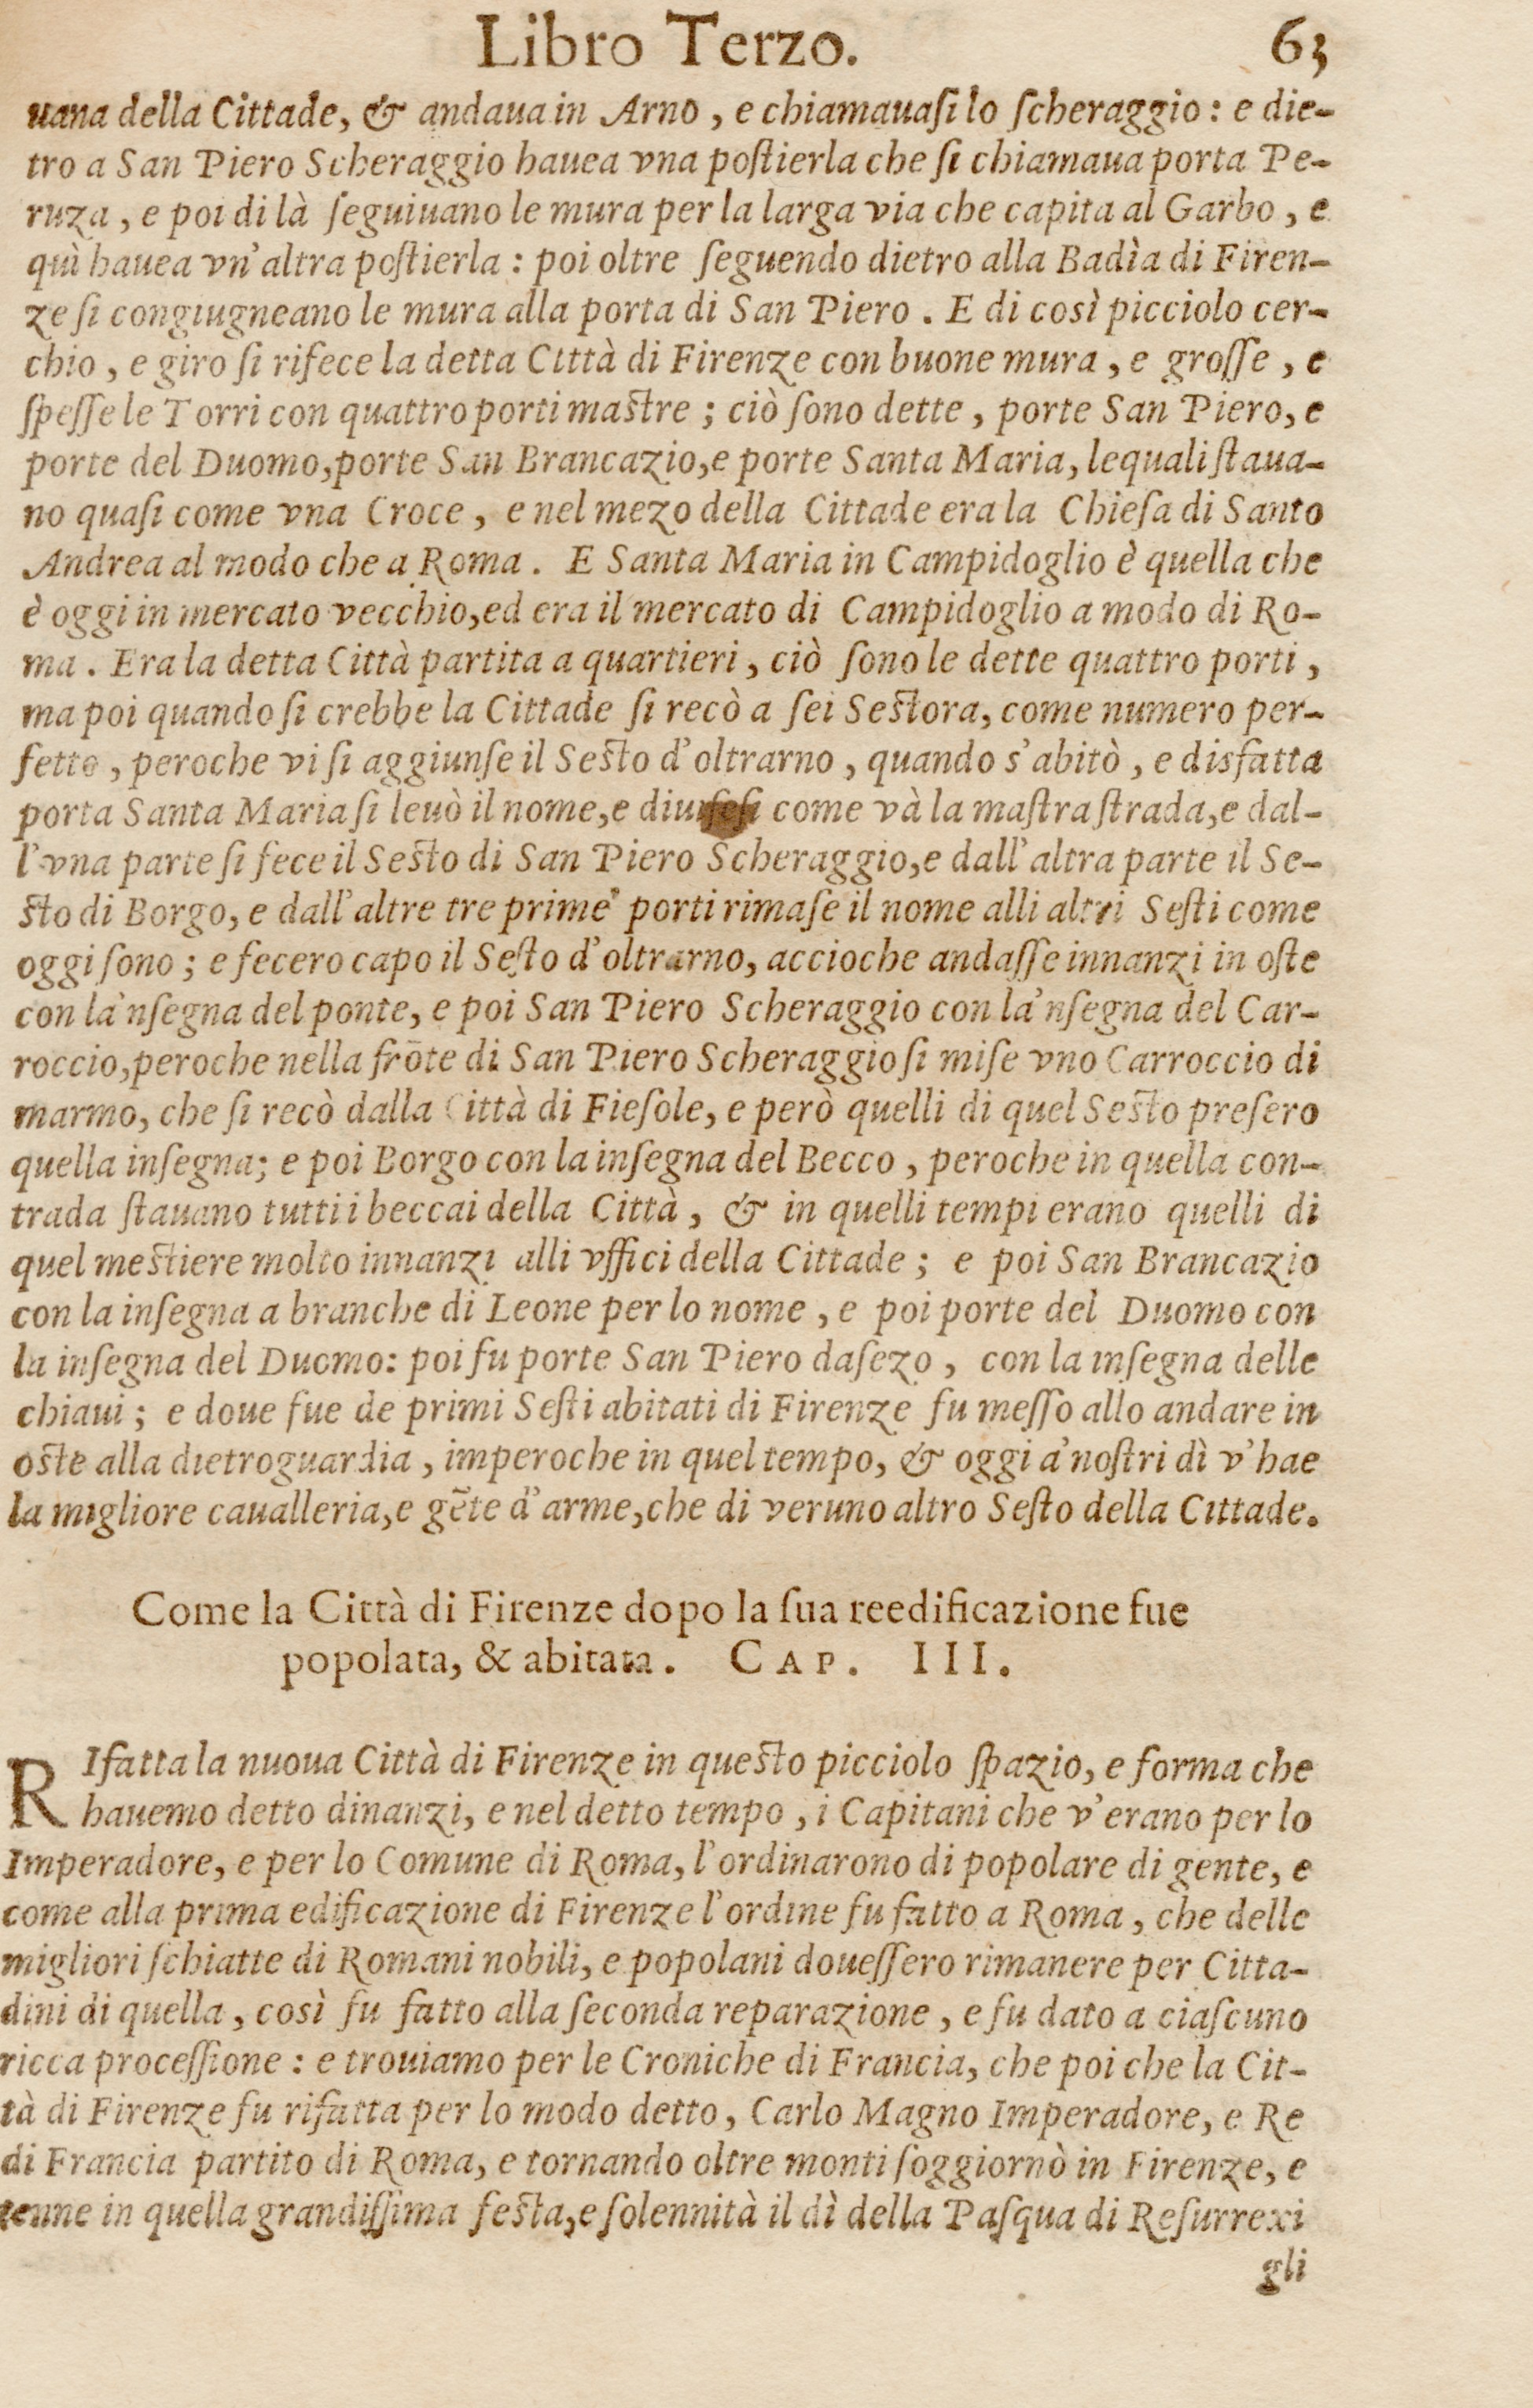 Libro Terzo. 63
uana della Cittade, & andaua in Arno, e chiamauaſi lo ſcheraggio: e die-
tro a San Piero Scheraggio hauea vna poſtierla che ſi chiamaua porta Pe-
ruza, e poi di là ſeguiuano le mura per la larga via che capita al Garbo, e
quì hauea vn'altra poſtierla: poi oltre ſeguendo dietro alla Badìa di Firen-
ze ſi congiugneano le mura alla porta di San Piero. E di così picciolo cer-
chio, e giro ſi rifece la detta Città di Firenze con buone mura, e groſſe, e
ſpeſſe le Torri con quattro porti maſtre; ciò ſono dette, porte San Piero, e
porte del Duomo, porte San Brancazio, e porte Santa Maria, lequali ſtaua-
no quaſi come vna Croce, e nel mezo della Cittade era la Chieſa di Santo
Andrea al modo che a Roma. E Santa Maria in Campidoglio è quella che
è oggi in mercato vecchio, ed era il mercato di Campidoglio a modo di Ro-
ma. Era la detta Città partita a quartieri, ciò ſono le dette quattro porti,
ma poi quando ſi crebbe la Cittade ſi recò a ſei Seſtora, come numero per-
fetto, peroche vi ſi aggiunſe il Seſto d'oltrarno, quando s'abitò, e disfatta
porta Santa Maria ſi leuò il nome, e diuiſeſi come và la maſtra ſtrada, e dal-
l'vna parte ſi fece il Seſto di San Piero Scheraggio, e dall'altra parte il Se-
ſto di Borgo, e dall'altre tre prime porti rimaſe il nome alli altri Seſti come
oggi ſono; e fecero capo il Seſto d'oltrarno, accioche andaſſe innanzi in oſte
con la'nſegna del ponte, e poi San Piero Scheraggio con la'nſegna del Car-
roccio, peroche nella frōte di San Piero Scheraggio ſi miſe vno Carroccio di
marmo, che ſi recò dalla Città di Fieſole, e però quelli di quel Seſto preſero
quella inſegna; e poi Borgo con la inſegna del Becco, peroche in quella con-
trada ſtauano tutti i beccai della Città, & in quelli tempi erano quelli di
quel meſtiere molto innanzi alli vffici della Cittade; e poi San Brancazio
con la inſegna a branche di Leone per lo nome, e poi porte del Duomo con
la inſegna del Duomo: poi fu porte San Piero daſezo, con la inſegna delle
chiaui; e doue fue de primi Seſti abitati di Firenze fu meſſo allo andare in
oſte alla dietroguardia, imperoche in quel tempo, & oggi a'noſtri dì v'hae
la migliore caualleria, e gēte d'arme, che di veruno altro Seſto della Cittade.
Come la Città di Firenze dopo la ſua reedificazione fue
popolata, & abitata. CAP. III.
RIfatta la nuoua Città di Firenze in queſto picciolo ſpazio, e forma che
hauemo detto dinanzi, e nel detto tempo, i Capitani che v'erano per lo
Imperadore, e per lo Comune di Roma, l'ordinarono di popolare di gente, e
come alla prima edificazione di Firenze l'ordine fu fatto a Roma, che delle
migliori ſchiatte di Romani nobili, e popolani doueſſero rimanere per Citta-
dini di quella, così fu fatto alla ſeconda reparazione, e fu dato a ciaſcuno
ricca proceſſione: e trouiamo per le Croniche di Francia, che poi che la Cit-
tà di Firenze fu rifatta per lo modo detto, Carlo Magno Imperadore, e Re
di Francia partito di Roma, e tornando oltre monti ſoggiornò in Firenze, e
tenne in quella grandiſſima feſta, e ſolennità il dì della Paſqua di Reſurrexi
gli